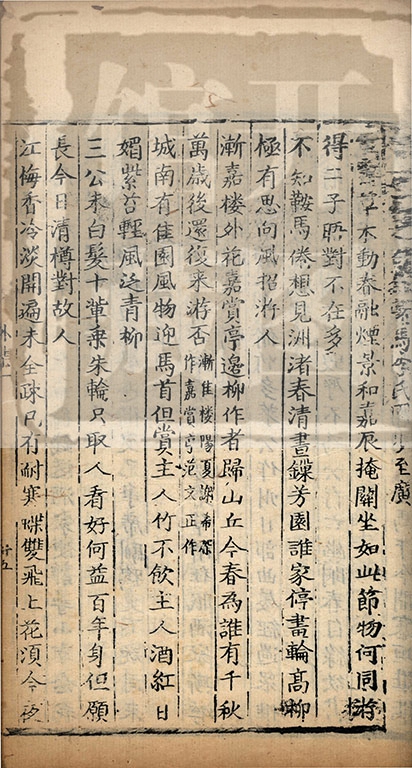 馬李氏園步至廣
木動春融煙景和嘉辰掩關坐如此節物何同游
得二子晤對不在多
不知鞍馬倦想見洲渚春清晝鏁芳園誰家停畫輪髙柳
極有思向風招游人
漸嘉樓外花嘉賞亭邉柳作者歸山丘今春為誰有千秋
萬歳後還復来游否漸佳樓陽夏謝希深
作嘉賞亭范文正作
城南有佳園風物迎馬首但賞主人竹不飲主人酒紅日
媚紫苔輕風泛青柳
三公未白髮十輩乗朱輪只取人看好何益百年身但願
長今日清樽對故人
江梅香冷淡開遍未全疎已有耐寒蝶雙飛上花湏今夜
外集一
十五